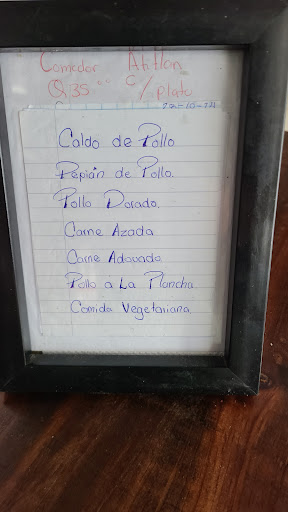 Comedor Atitlan
Q 35.00 c/plato
Caldo de Pollo
Pepián de Pollo.
Pollo Dorado.
Carne Azada
Carne Adovado
Pollo a La Plancha
Comida Vegetariana